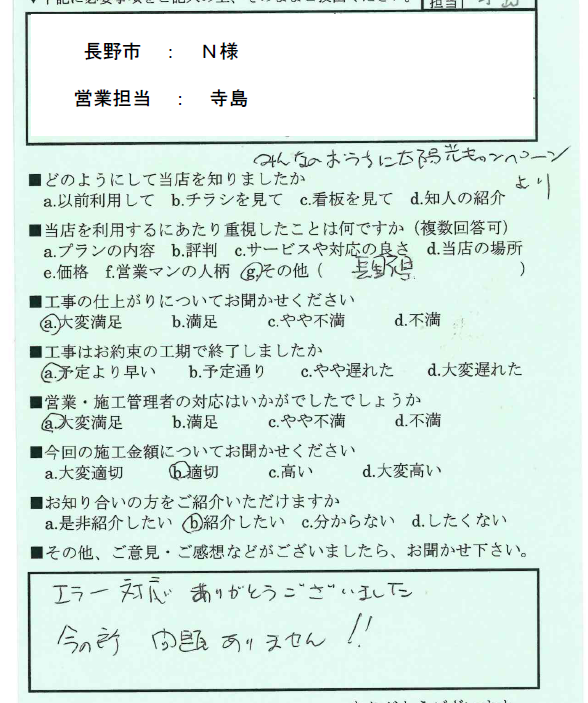 長野市 ： N様
営業担当 ： 寺島
みんなのおうちに太陽光キャンペーン
より
■どのようにして当店を知りましたか
a.以前利用して b.チラシを見て c.看板を見て d.知人の紹介
■当店を利用するにあたり重視したことは何ですか（複数回答可）
a.プランの内容 b.評判 c.サービスや対応の良さ d.当店の場所
e.価格 f.営業マンの人柄 g.その他（ 長野県 ）
■工事の仕上がりについてお聞かせください
a.大変満足 b.満足 c.やや不満 d.不満
■工事はお約束の工期で終了しましたか
a.予定より早い b.予定通り c.やや遅れた d.大変遅れた
■営業・施工管理者の対応はいかがでしたでしょうか
a.大変満足 b.満足 c.やや不満 d.不満
■今回の施工金額についてお聞かせください
a.大変適切 b.適切 c.高い d.大変高い
■お知り合いの方をご紹介いただけますか
a.是非紹介したい b.紹介したい c.分からない d.したくない
■その他、ご意見・ご感想などがございましたら、お聞かせ下さい。
エラー対応 ありがとうございました
今の所 問題ありません!!